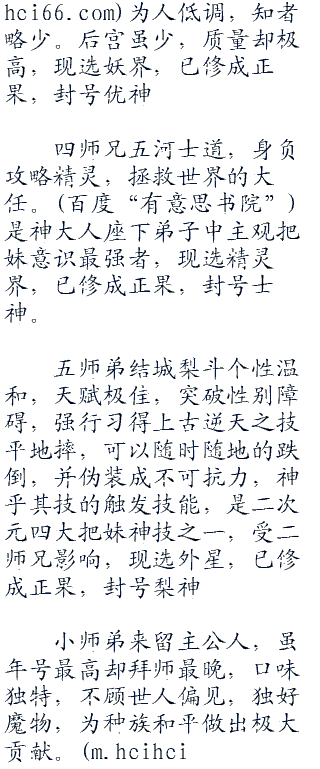 hci66.com)为人低调，知者
略少。后宫虽少，质量却极
高，现选妖界，已修成正
果，封号优神
四师兄五河士道，身负
攻略精灵，拯救世界的大
任。(百度“有意思书院”)
是神大人座下弟子中主观把
妹意识最强者，现选精灵
界，已修成正果，封号士
神。
五师弟结城梨斗个性温
和，天赋极佳，突破性别障
碍，强行习得上古逆天之技
平地摔，可以随时随地的跌
倒，并伪装成不可抗力，神
乎其技的触发技能，是二次
元四大把妹神技之一，受二
师兄影响，现选外星，已修
成正果，封号梨神
小师弟来留主公人，虽
年号最高却拜师最晚，口味
独特，不顾世人偏见，独好
魔物，为种族和平做出极大
贡献。(m.hcihci